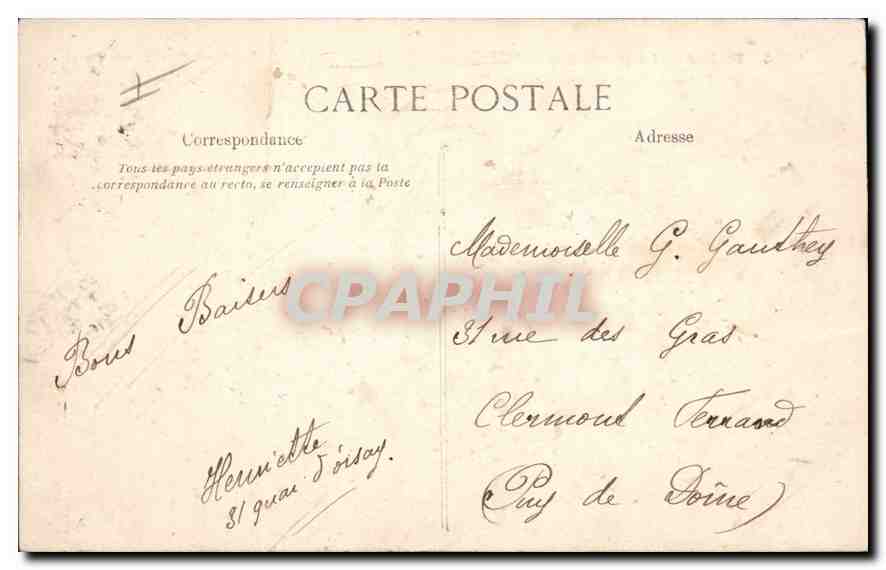 CARTE POSTALE
Correspondance
Adresse
Tous les pays étrangers n'acceptent pas la
correspondance au recto, se renseigner à la Poste
Bons Baisers
Henriette
31 quai d'orsay.
Mademoiselle G. Gauthey
31 rue des Gras
Clermont Ferrand
(Puy de Dôme)
CPAPHIL